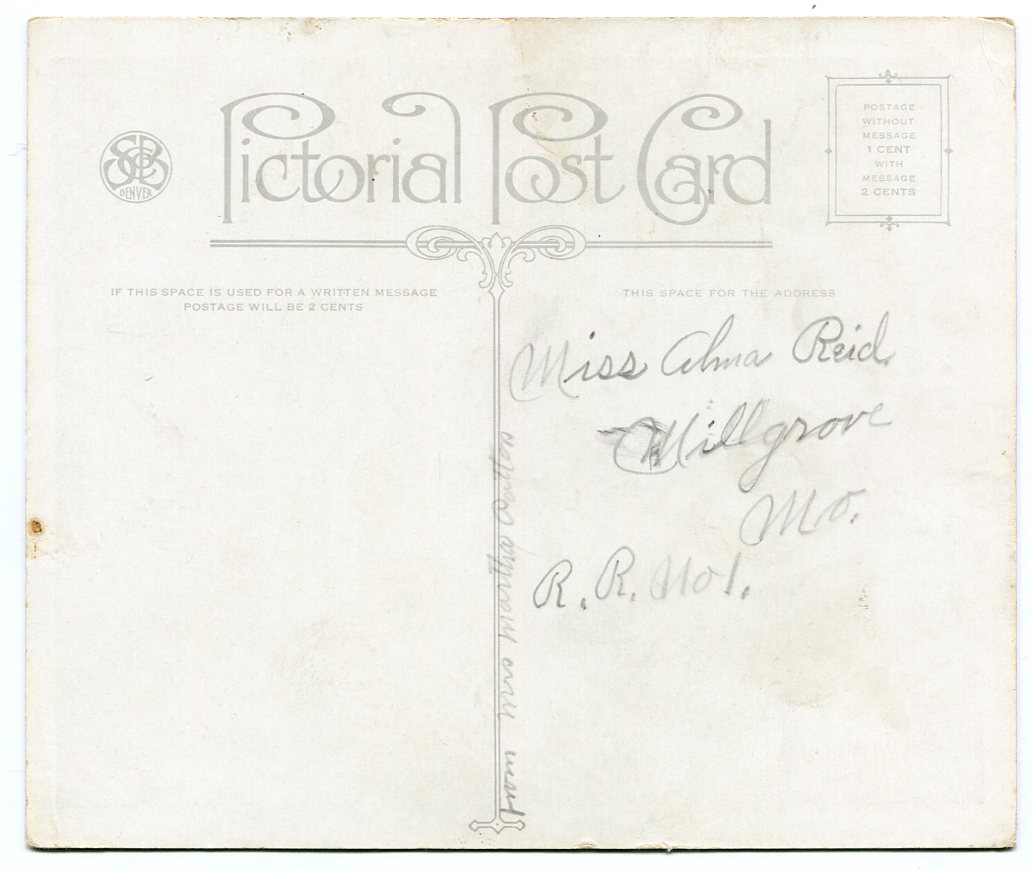 Pictorial Post Card
DENVER
POSTAGE
WITHOUT
MESSAGE
1 CENT
WITH
MESSAGE
2 CENTS
IF THIS SPACE IS USED FOR A WRITTEN MESSAGE
POSTAGE WILL BE 2 CENTS
THIS SPACE FOR THE ADDRESS
Miss Alma Reid
Millgrove
Mo.
R. R. No 1.
from Mrs Martha